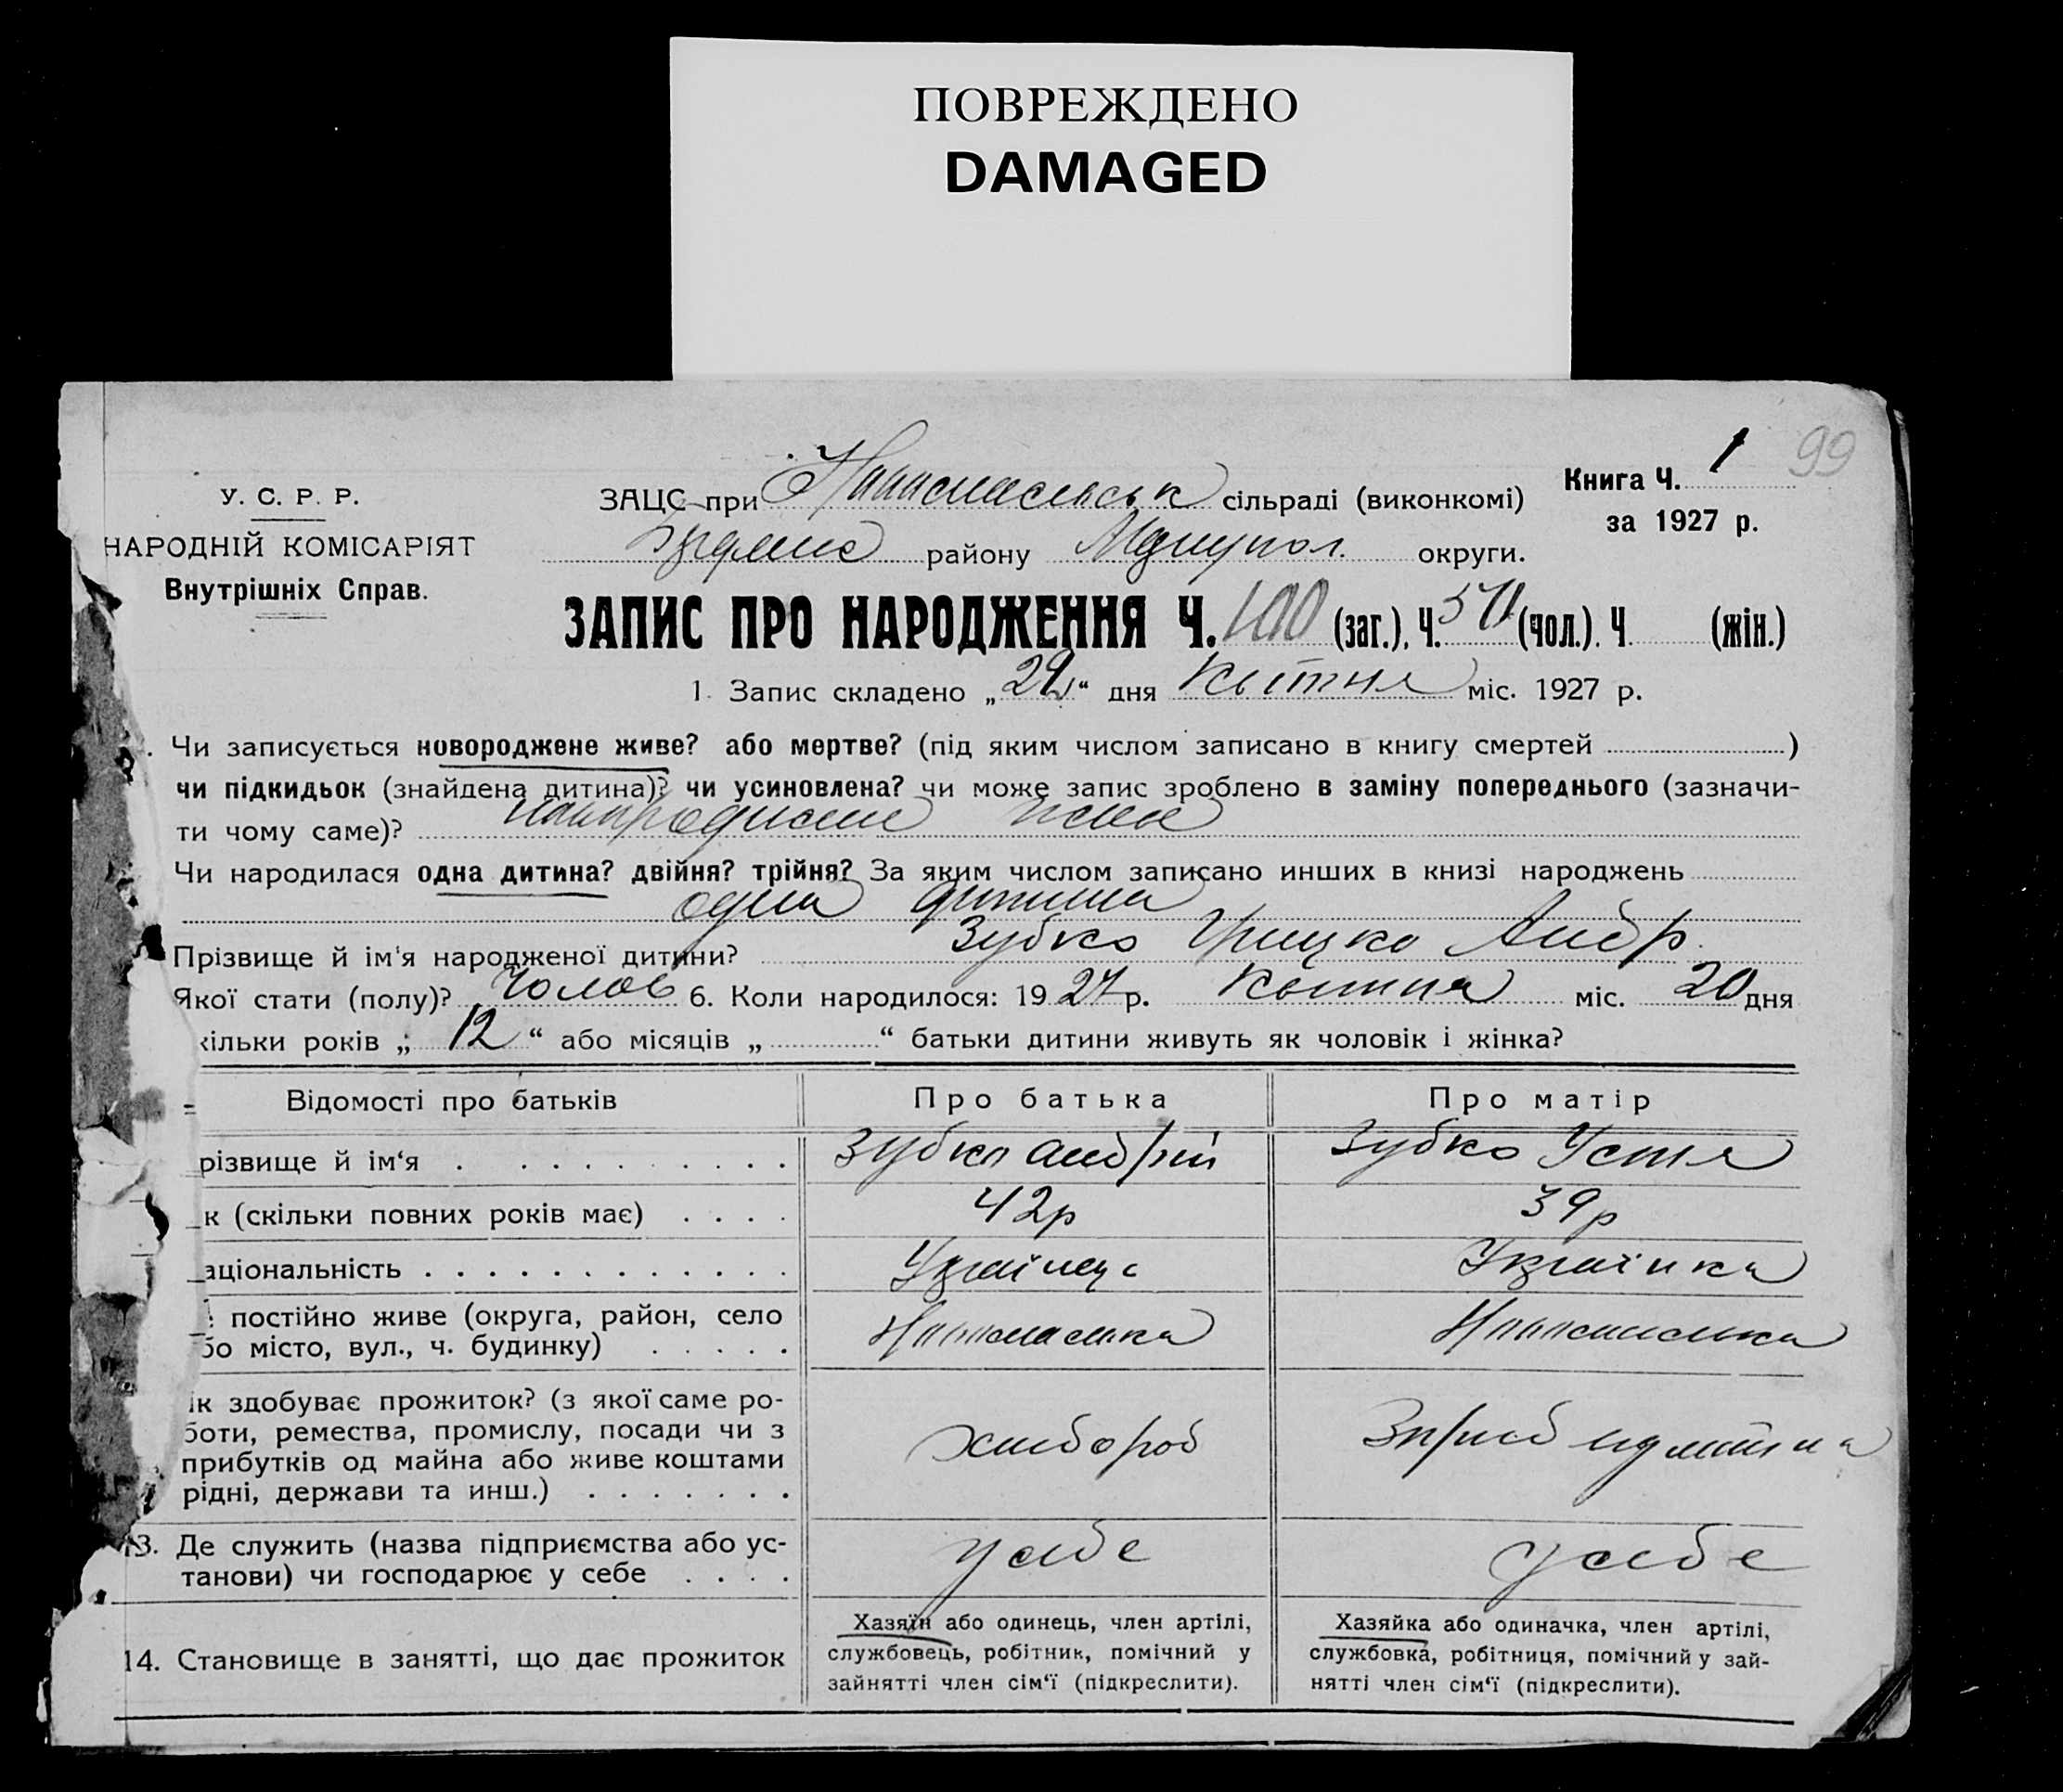 ПОВРЕЖДЕНО
DAMAGED
Книга Ч. 1 99
за 1927 р.
У. С. Р. Р.
НАРОДНІЙ КОМІСАРІЯТ
Внутрішніх Справ.
ЗАЦС при сільраді (виконкомі)
району Маріупол. округи.
ЗАПИС ПРО НАРОДЖЕННЯ Ч. 100 (заг.), Ч. (чол.). Ч (жін.)
1. Запис складено „ “ дня Квітня міс. 1927 р.
. Чи записується новороджене живе? або мертве? (під яким числом записано в книгу смертей )
чи підкидьок (знайдена дитина)? чи усиновлена? чи може запис зроблено в заміну попереднього (зазначи-
ти чому саме)?
Чи народилася одна дитина? двійня? трійня? За яким числом записано инших в книзі народжень
одна дитина
Прізвище й ім'я народженої дитини? Зубко Грицко Андр.
Якої стати (полу)? Чолов 6. Коли народилося: 1927 р. Квітня міс. 20 дня
кільки років „ 12 “ або місяців „ “ батьки дитини живуть як чоловік і жінка?
Відомості про батьків Про батька Про матір
різвище й ім‘я Зубко Андрій Зубко Устя
к (скільки повних років має) 42р 39р
аціональність Українець Українка
постійно живе (округа, район, село
бо місто, вул., ч. будинку)
ік здобуває прожиток? (з якої саме ро-
боти, ремества, промислу, посади чи з
прибутків од майна або живе коштами
рідні, держави та инш.) хлібороб
13. Де служить (назва підприємства або ус-
танови) чи господарює у себе у себе у себе
14. Становище в занятті, що дає прожиток
Хазяїн або одинець, член артілі,
службовець, робітник, помічний у
зайнятті член сім‘ї (підкреслити).
Хазяйка або одиначка, член артілі,
службовка, робітниця, помічний у зай-
нятті член сім‘ї (підкреслити).